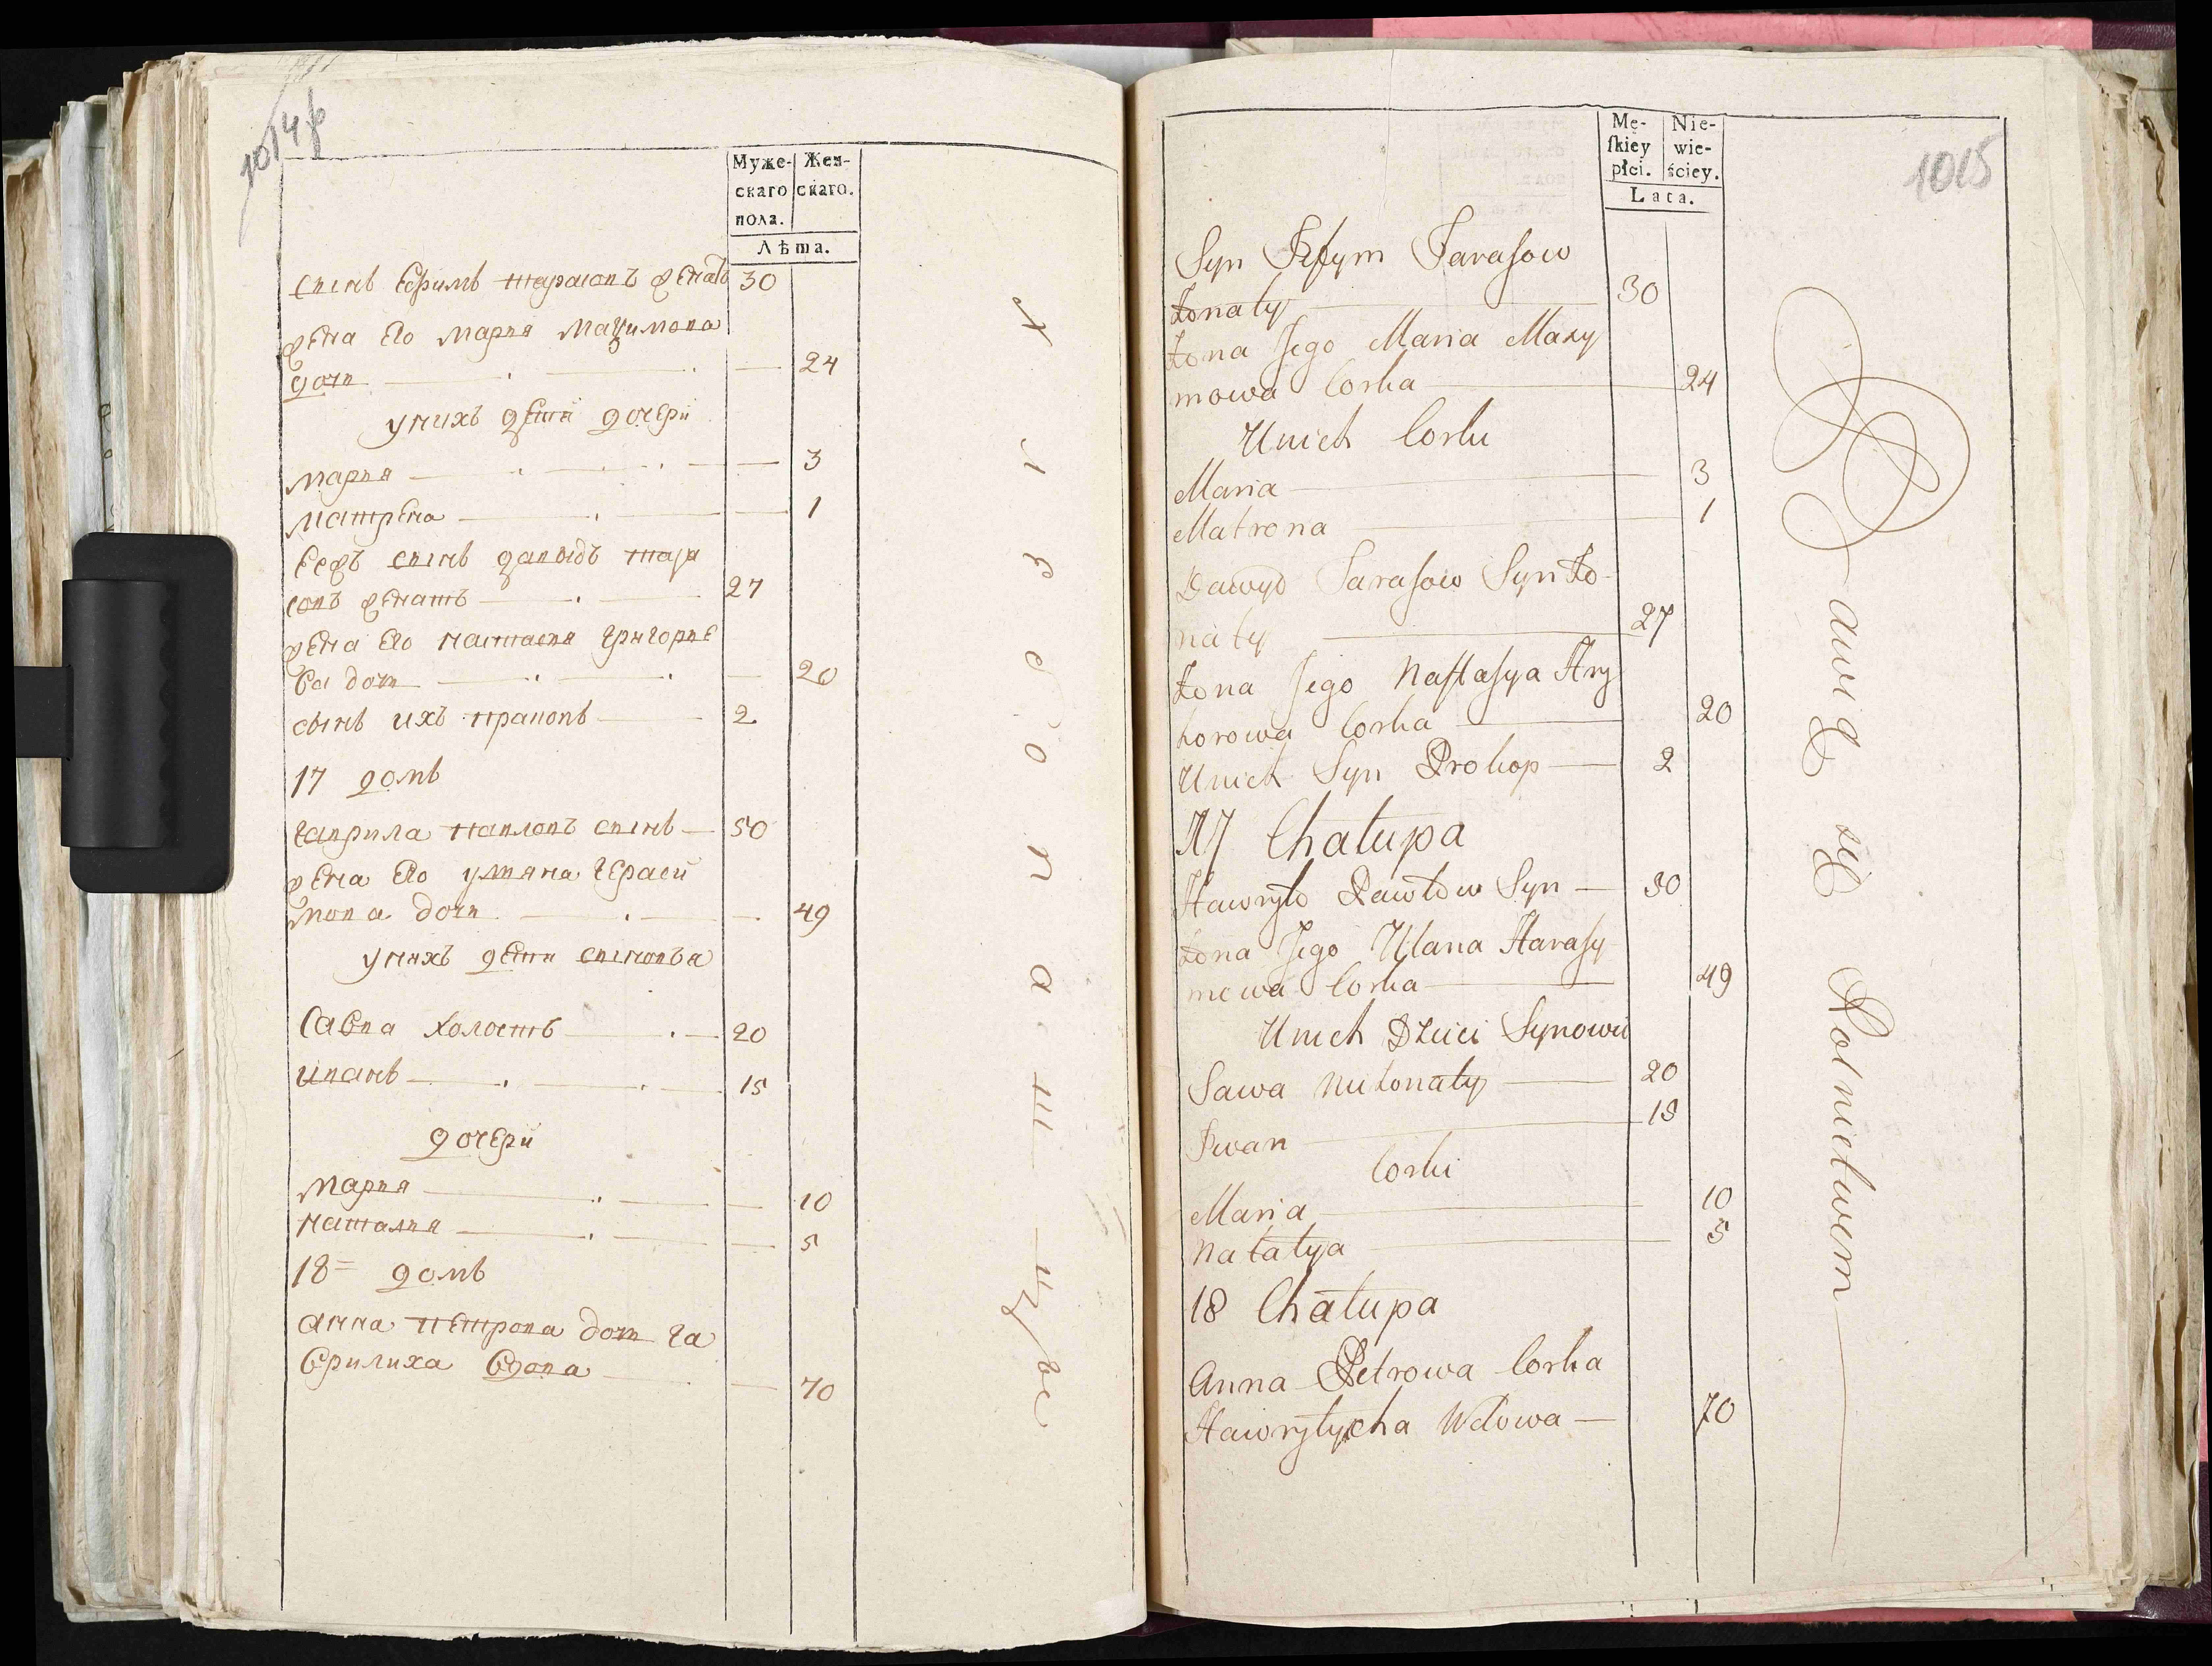 1014 об
Муже-
скаго
пола.
Жен-
скаго.
Лѣта.
сынъ Ефимъ тарасовъ женатъ 30
жена его марья мазимова
дочь 24
у нихъ дети дочери
марья 3
матрена 1
Еефъ сынъ давыдъ тара
совъ женатъ 27
жена его настасья григорье
ва дочь 20
сынъ ихъ пракопъ 2
17 домъ
гаврила павловъ сынъ 50
жена его ульяна гераси
мова дочь 49
у нихъ дети сыновья
савва холостъ 20
иванъ 15
дочери
марья 10
наталья 5
18 = домъ
анна петрова дочь га
врилиха вдова 70
хлебопашцы
1015
Mę-
ſkiey
płci.
Nie-
wie-
ściey.
Lata.
Syn Jefym Taraſow
Żonaty 30
Żona Jego Maria Maxy
mowa Corka 24
Unich Corki
Maria 3
Matrona 1
Dawyd Taraſow Syn Żo-
naty 27
Żona Jego Naſtaſya Hry
horowa Corka 20
Unich Syn Prokop 2
17 Chałupa
Hawryło Pawłow Syn 50
Żona Jego Ulana Haraſy-
mowa Corka 49
Unich Dzieci Synowie
Sawa nieżonaty 20
Iwan 15
Corki
Maria 10
Natalya 5
18 Chałupa
Anna Petrowa Corka
Hawryłycha Wdowa 70
Bawią się Rolnictwem